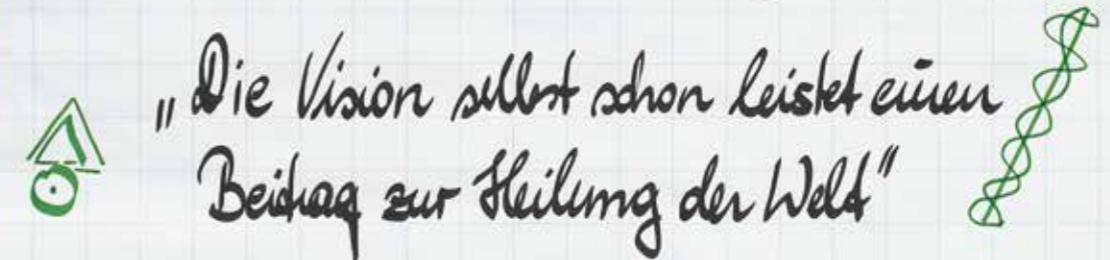 „Die Vision selbst schon leistet einen
Beitrag zur Heilung der Welt"